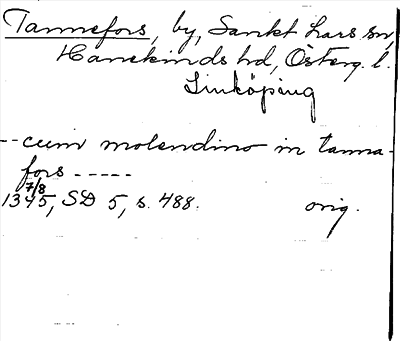 Tannefors, by, Sankt Lars sn,
Hanekinds hd, Österg. l.
Linköping
-- cum molendino in tanna-
fors -----
7/8
1345, SD 5, s. 488. orig.